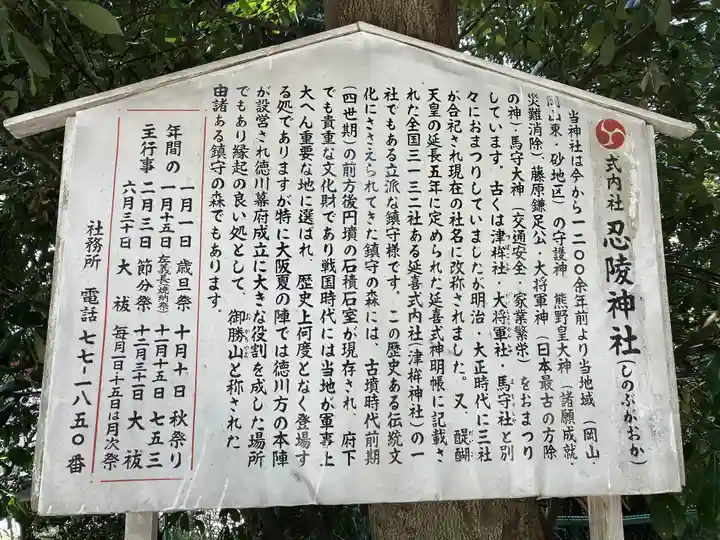 式内社 忍陵神社(しのぶがおか)
当神社は今から一二〇〇余年前より当地域(岡山・
岡山東・砂地区)の守護神 熊野皇大神(諸願成就・
災難消除)、藤原鎌足公・大将軍神(日本最古の方除
の神)・馬守大神(交通安全・家業繁栄)をおまつり
しています。古くは津桙社・大将軍社・馬守社と別
々におまつりしていましたが明治・大正時代に三社
が合祀され現在の社名に改称されました。又、醍醐
天皇の延長五年に定められた延喜式神明帳に記載さ
れた全国三一三二社ある延喜式内社(津桙神社)の一
社でもある立派な鎮守様です。この歴史ある伝統文
化にささえられてきた鎮守の森には、古墳時代前期
(四世期)の前方後円墳の石積石室が現存され、府下
でも貴重な文化財であり戦国時代には当地が軍事上
大へん重要な地に選ばれ、歴史上何度となく登場す
る処でありますが特に大阪夏の陣では徳川方の本陣
が設営され徳川幕府成立に大きな役割を成した場所
でもあり縁起の良い処として、御勝山と称された
おかちやま
由諸ある鎮守の森でもあります。
年間の主行事
一月一日 歳旦祭 十月十日 秋祭り
一月十五日 左義長(焼納祭) 十一月十五日 七五三
二月三日 節分祭 十二月三十一日 大祓
六月三十日 大祓 毎月一日・十五日は月次祭
社務所 電話 七七-一八五〇番